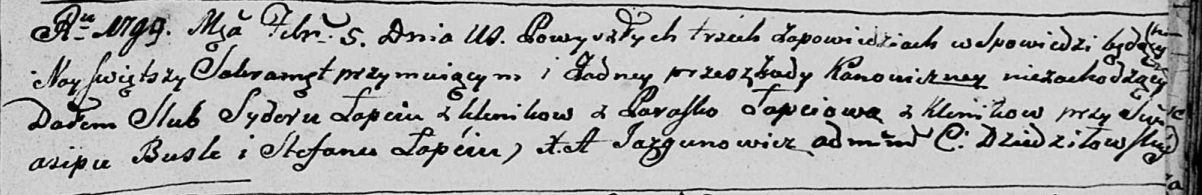 Rᵘ 1799. Mça Febr. 5. Dnia Us. Powyszłych trzech Zapowiedziach w Spowiedzi będący
Nayświętszy Sakrament przymuiącym i Żadney przeszkady Kanoniczney niezachodzący
Dałem Slub Sydoru Łapciu z klinikow z Parasko Łapciową z Klinikow przy
asipu Busle i Stefanu Łapciu, x. A Jazgunowicz admin C: Dziedziłow